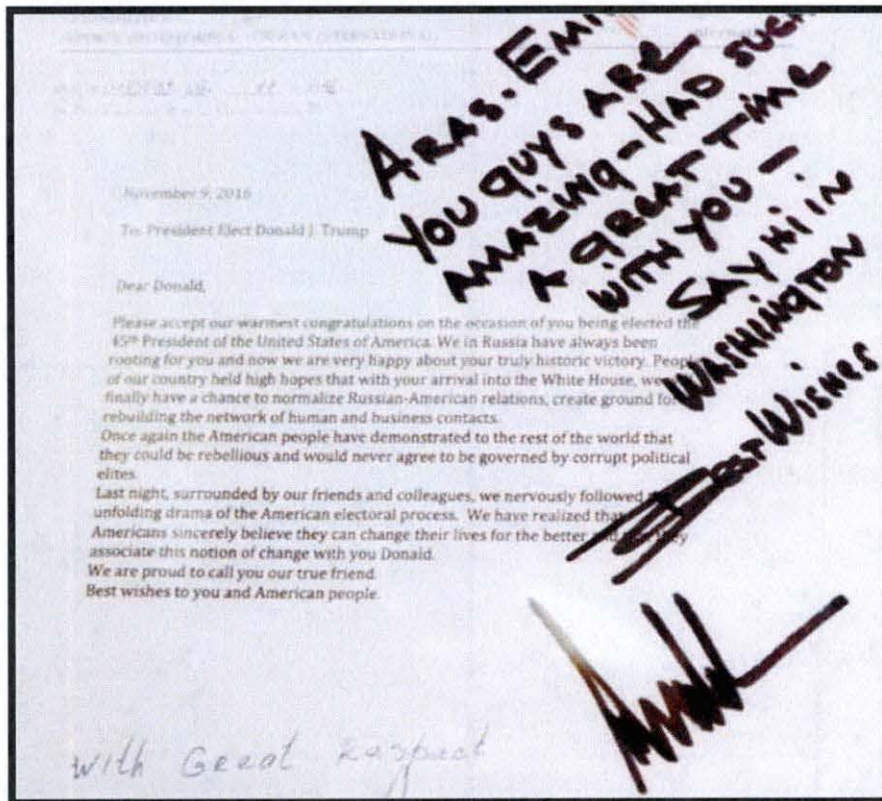 ARAS - EMI
YOU GUYS ARE
AMAZING - HAD SUCH
A GREAT TIME
WITH YOU -
SAY HI IN
WASHINGTON
Best Wishes
November 9, 2016
To: President Elect Donald J. Trump
Dear Donald,
Please accept our warmest congratulations on the occasion of you being elected the
45th President of the United States of America. We in Russia have always been
rooting for you and now we are very happy about your truly historic victory. People
of our country held high hopes that with your arrival into the White House, we
finally have a chance to normalize Russian-American relations, create ground for
rebuilding the network of human and business contacts.
Once again the American people have demonstrated to the rest of the world that
they could be rebellious and would never agree to be governed by corrupt political
elites.
Last night, surrounded by our friends and colleagues, we nervously followed
unfolding drama of the American electoral process. We have realized that
Americans sincerely believe they can change their lives for the better and they
associate this notion of change with you Donald.
We are proud to call you our true friend.
Best wishes to you and American people.
With Great Respect